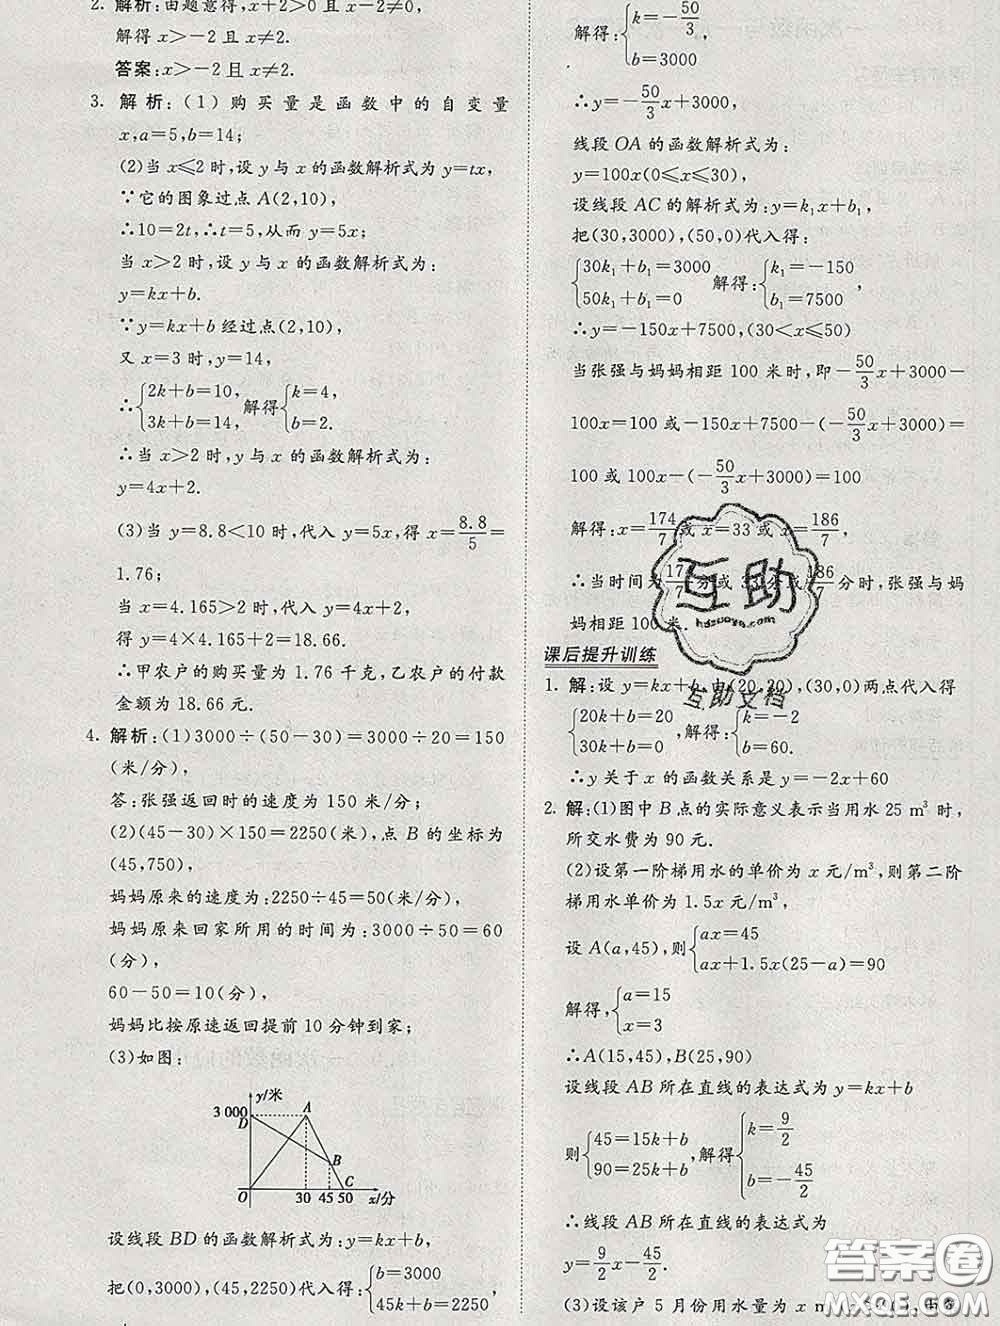 2. 解析:由题意得,x+2>0 且 x-2≠0,
解得 x>-2 且 x≠2.
答案:x>-2 且 x≠2.
3. 解析:(1)购买量是函数中的自变量
x,a=5,b=14;
(2)当 x≤2 时,设 y 与 x 的函数解析式为 y=tx,
∵它的图象过点 A(2,10),
∴10=2t,∴t=5,从而 y=5x;
当 x>2 时,设 y 与 x 的函数解析式为:
y=kx+b.
∵y=kx+b 经过点(2,10),
又 x=3 时,y=14,
∴{2k+b=10, 3k+b=14, 解得{k=4, b=2.
∴当 x>2 时,y 与 x 的函数解析式为:
y=4x+2.
(3)当 y=8.8<10 时,代入 y=5x,得 x=8.8/5=
1.76;
当 x=4.165>2 时,代入 y=4x+2,
得 y=4×4.165+2=18.66.
∴甲农户的购买量为 1.76 千克,乙农户的付款
金额为 18.66 元.
4. 解析:(1)3000÷(50-30)=3000÷20=150
(米/分),
答:张强返回时的速度为 150 米/分;
(2)(45-30)×150=2250(米),点 B 的坐标为
(45,750),
妈妈原来的速度为:2250÷45=50(米/分),
妈妈原来回家所用的时间为:3000÷50=60
(分),
60-50=10(分),
妈妈比按原速返回提前 10 分钟到家;
(3)如图:
y/米
3 000
D
A
B
C
O
30 45 50 x/分
设线段 BD 的函数解析式为:y=kx+b,
把(0,3000),(45,2250)代入得:{b=3000 45k+b=2250
解得:{k=-50/3, b=3000
∴y=-50/3x+3000,
线段 OA 的函数解析式为:
y=100x(0≤x≤30),
设线段 AC 的解析式为:y=k₁x+b₁,
把(30,3000),(50,0)代入得:
{30k₁+b₁=3000 50k₁+b₁=0 解得:{k₁=-150 b₁=7500,
∴y=-150x+7500,(30<x≤50)
当张强与妈妈相距 100 米时,即-50/3x+3000-
100x=100 或-150x+7500-(-50/3x+3000)=
100 或 100x-(-50/3x+3000)=100
解得:x=174/7 或 x=33 或 x=186/7,
∴当时间为 17 分或 33 分或 186/7 分时,张强与妈
妈相距 100 米.
互助
hdzuoye.com
互助文档
课后提升训练
1. 解:设 y=kx+b,由(20,20),(30,0)两点代入得
{20k+b=20 30k+b=0,解得:{k=-2 b=60.
∴y 关于 x 的函数关系是 y=-2x+60
2. 解:(1)图中 B 点的实际意义表示当用水 25 m³ 时,
所交水费为 90 元.
(2)设第一阶梯用水的单价为 x 元/m³,则第二阶
梯用水单价为 1.5x 元/m³,
设 A(a,45),则{ax=45 ax+1.5x(25-a)=90
解得,{a=15 x=3
∴A(15,45),B(25,90)
设线段 AB 所在直线的表达式为 y=kx+b
则{45=15k+b 90=25k+b,解得{k=9/2 b=-45/2
∴线段 AB 所在直线的表达式为
y=9/2x-45/2.
(3)设该户 5 月份用水量为 x m³
答案卷